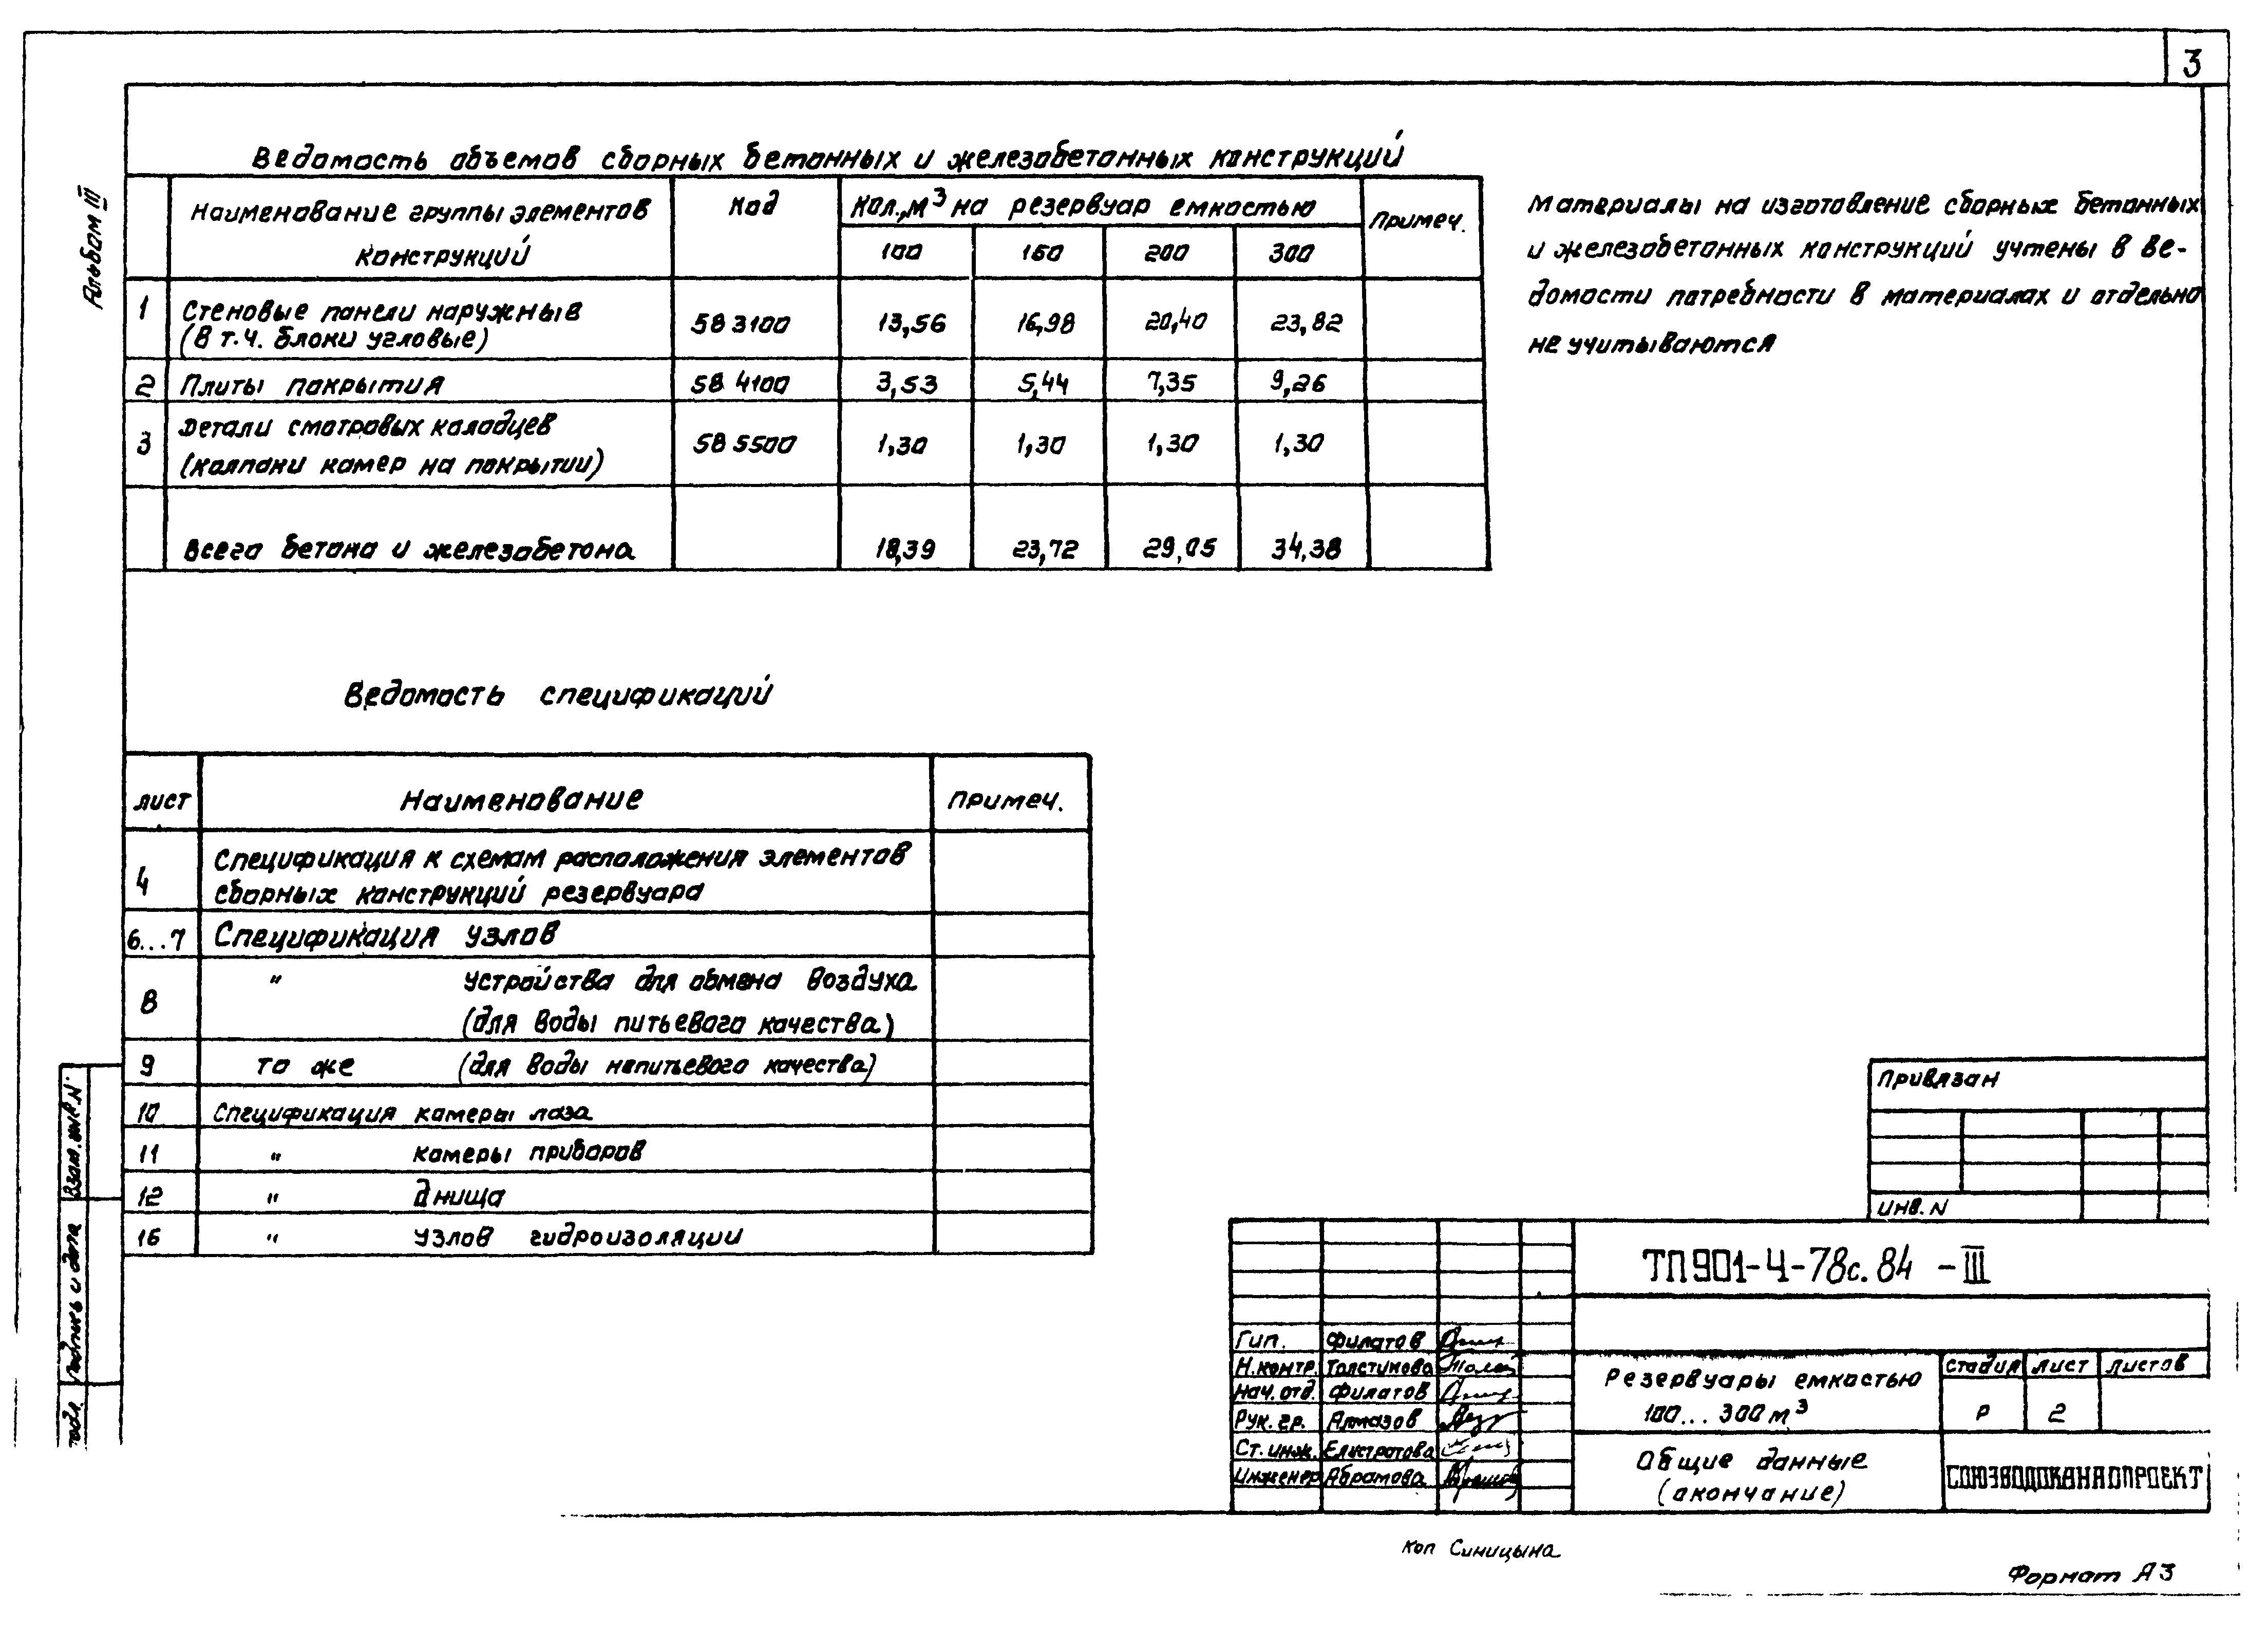 3
Альбом III
Ведомость объемов сборных бетонных и железобетонных конструкций
Наименование группы элементов конструкций
Код
Кол., м³ на резервуар емкостью
Примеч.
100 150 200 300
1 Стеновые панели наружные 583100 13,56 16,98 20,40 23,82
(в т.ч. блоки угловые)
2 Плиты покрытия 584100 3,53 5,44 7,35 9,26
3 Детали смотровых колодцев 585500 1,30 1,30 1,30 1,30
(колпаки камер на покрытии)
Всего бетона и железобетона 18,39 23,72 29,05 34,38
Материалы на изготовление сборных бетонных
и железобетонных конструкций учтены в ве-
домости потребности в материалах и отдельно
не учитываются
Ведомость спецификаций
лист Наименование Примеч.
4 Спецификация к схемам расположения элементов
сборных конструкций резервуара
6...7 Спецификация узлов
8 " устройства для обмена воздуха
(для воды питьевого качества)
9 то же (для воды непитьевого качества)
10 Спецификация камеры лаза
11 " камеры приборов
12 " днища
16 " узлов гидроизоляции
Взам. инв. N
Подпись и дата
подл.
Привязан
Инв. N
ТП901-4-78с.84 -III
Гип. Филатов
Н.контр. Толстикова
Нач. отд. Филатов
Рук. гр. Алмазов
Ст. инж. Елистратова
Инженер Абрамова
Резервуары емкостью
100... 300 м³
стадия лист листов
Р 2
Общие данные
(окончание)
СОЮЗВОДОКАНАЛПРОЕКТ
Коп Синицына
Формат А3